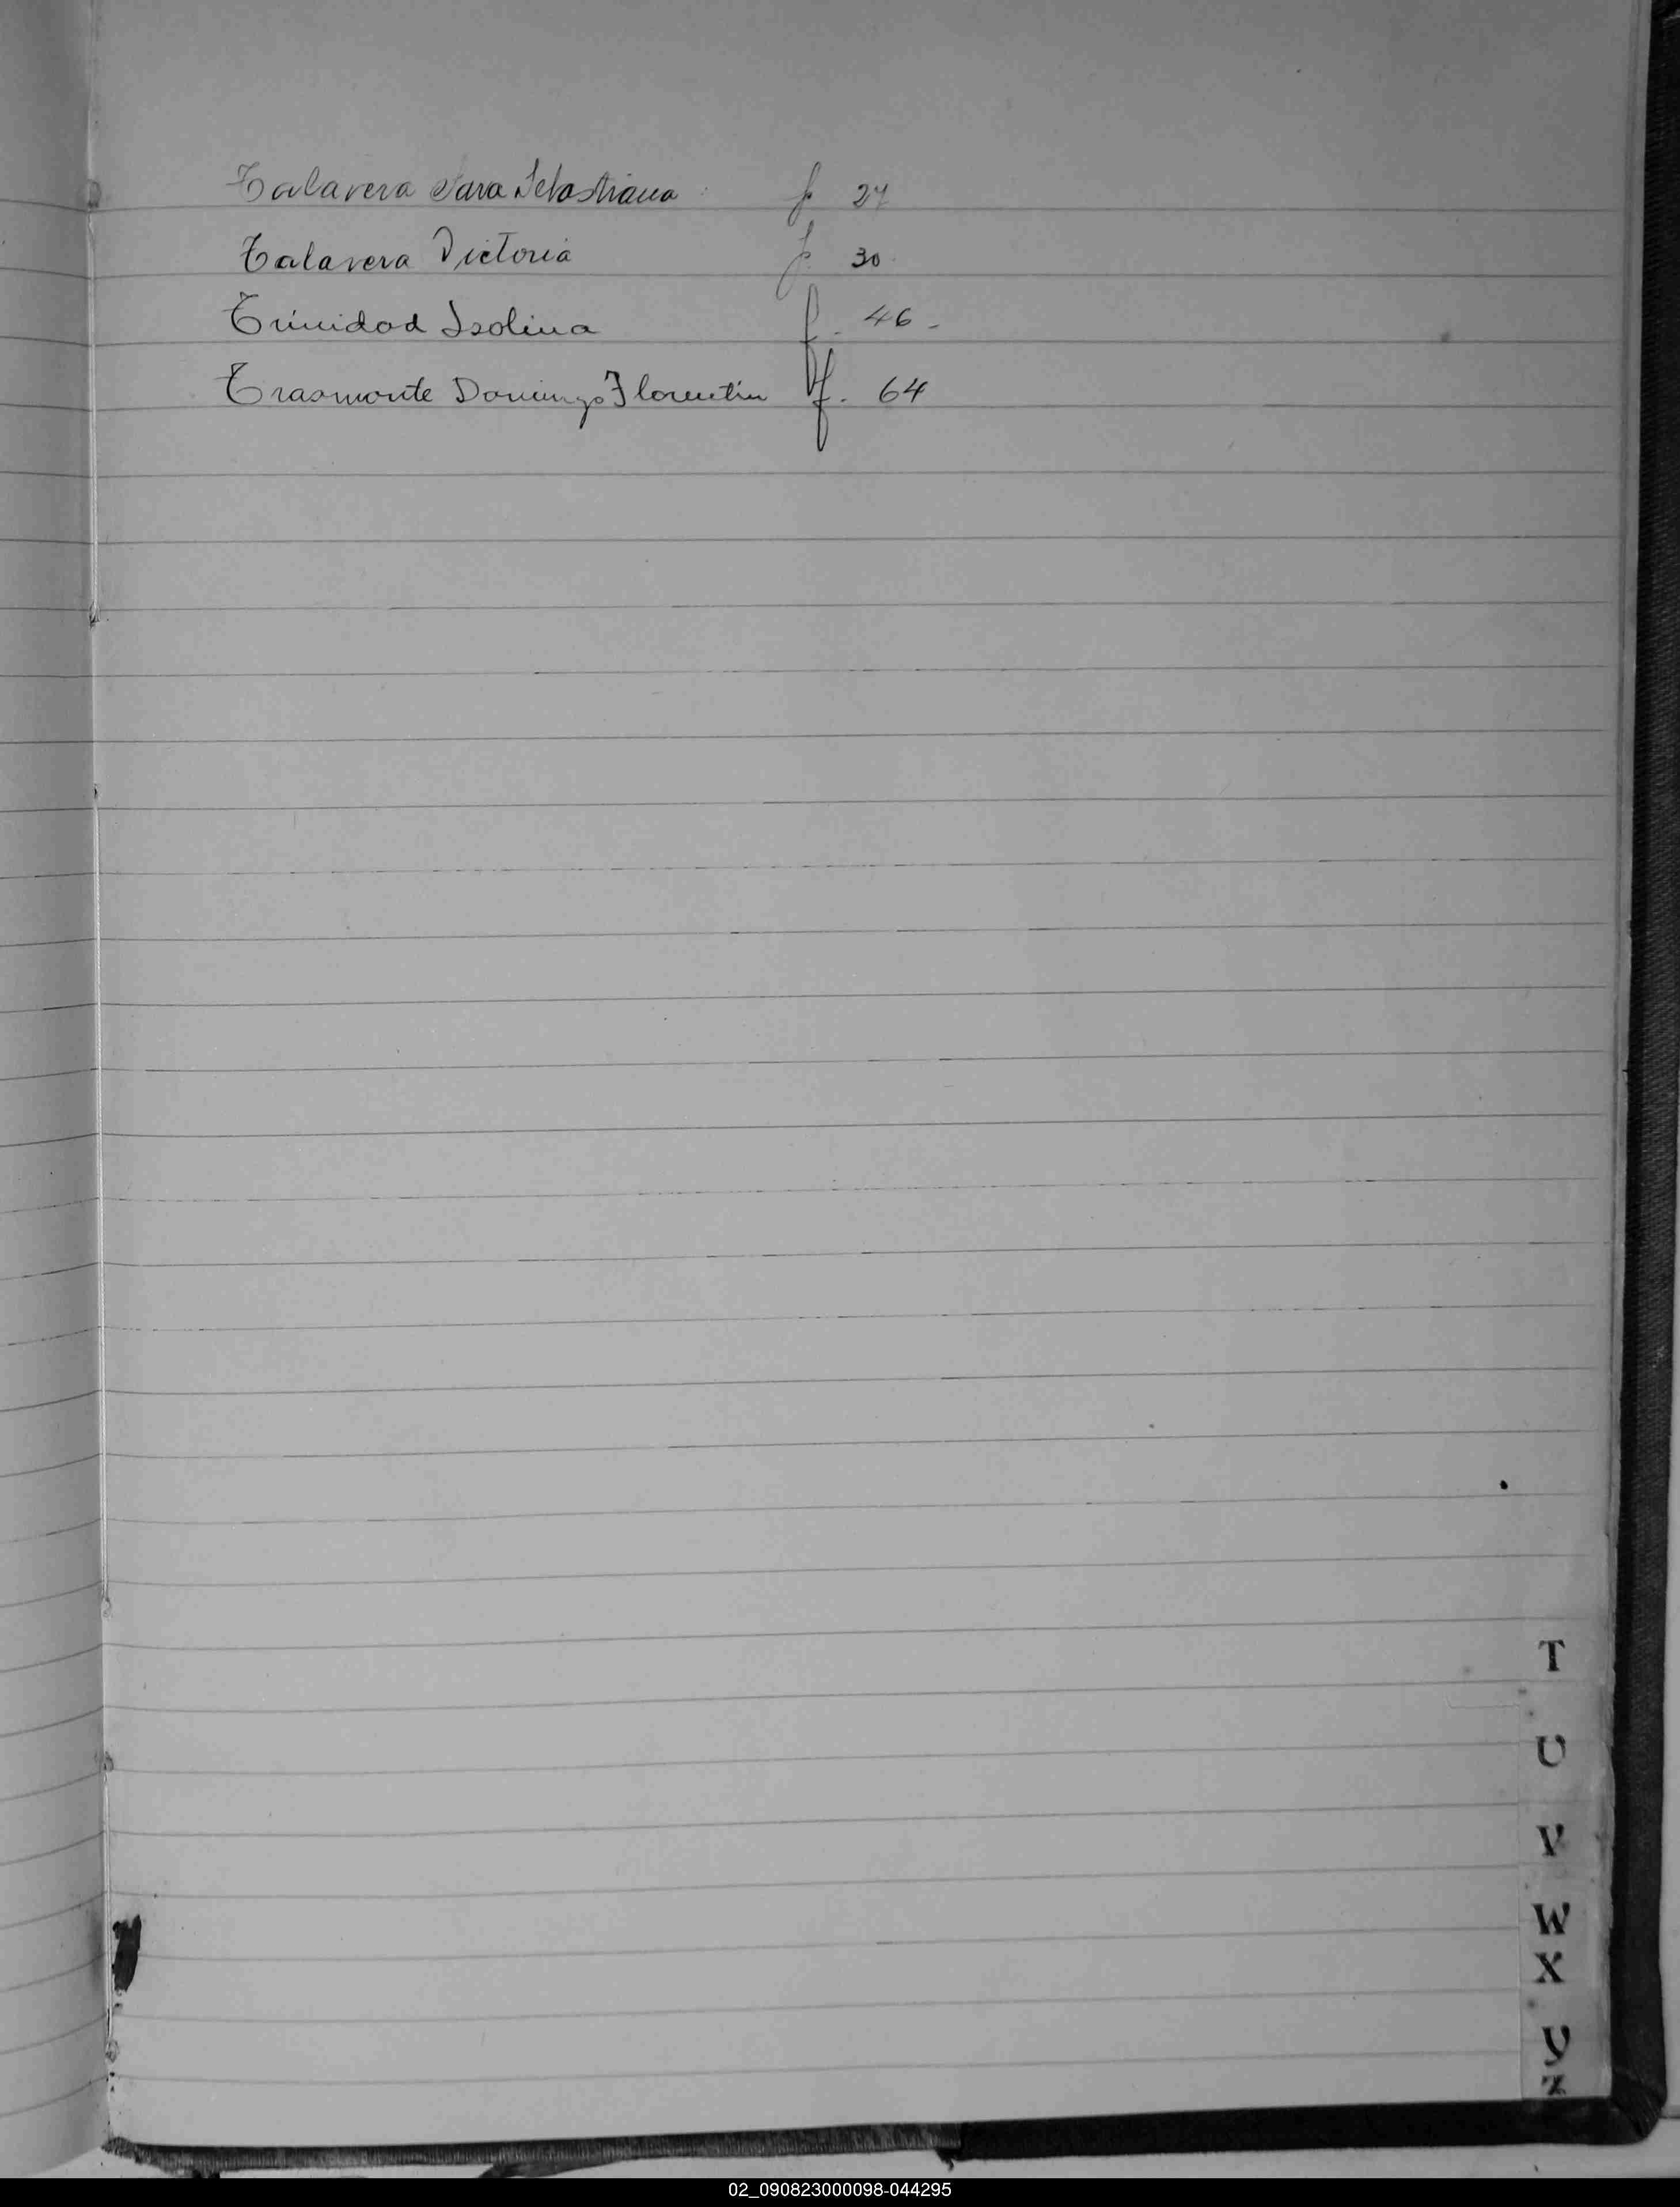 Talavera Sara Sebastiana f 27
Talavera Victoria f. 30
Trinidad Isolina f. 46-
Trasmonte Domingo Florentin f. 64
T
U
V
W
X
Y
Z
02_090823000098-044295